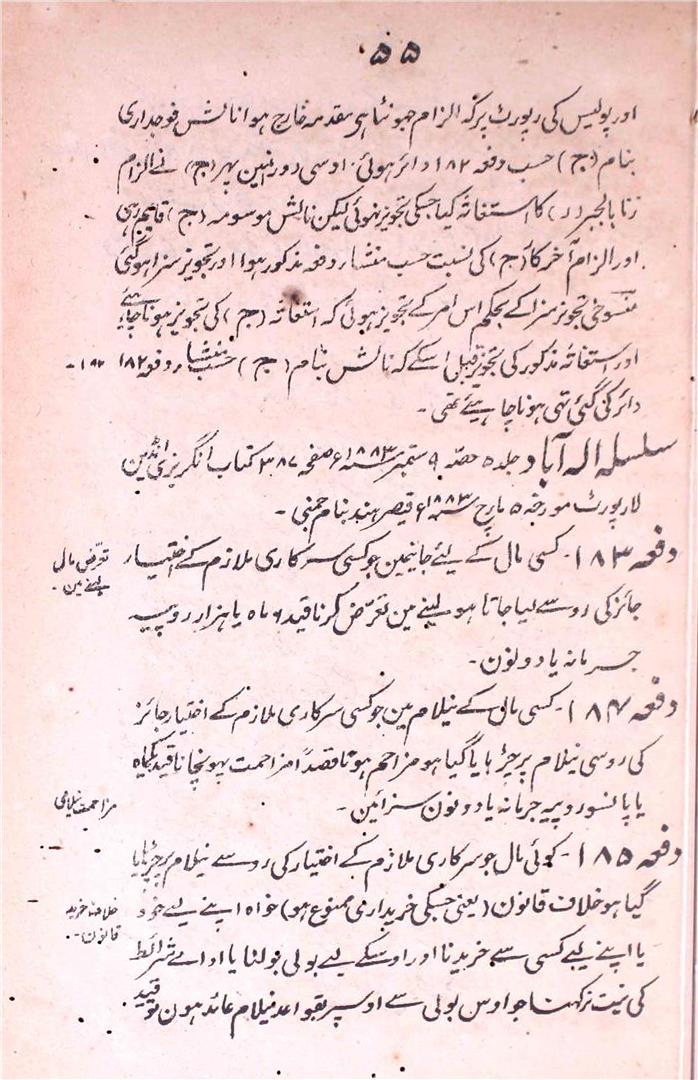 ۵۵
اور پولیس کی رپورٹ پر کہ الزام جھوٹا ہی مقدمہ خارج ہوا نالش فوجداری
بنام (ج) حسب دفعہ ۱۸۲ دائر ہوئی۔ اوسی دوران مین پھر (ج) نے الزام
زنا بالجبر (د) کا استغاثہ کیا جسکی تجویز نہوئی لیکن نالش موسومہ (ج) قایم رہی
اور الزام آخر کار (ج) کی نسبت حسب منشار دفعہ مذکور ہوا اور تجویز سزا ہو گئی
منسوخی تجویز سزا کے بحکم اس امر کے تجویز ہوئی کہ استغاثہ (ج) کی تجویز ہونا چاہیئے
اور استغاثہ مذکور کی تجویز قبل اسکے کہ نالش بنام (ج) حسب منشار دفعہ ۱۸۲
دائر کی گئی تہی ہونا چاہیئے تھی۔
سلسلہ الہ آباد جلد ۵ حصہ ۹ ستمبر ۱۸۸۳ء صفحہ ۳۸۷ کتاب انگریزی انڈین
لا رپورٹ مورخہ ۵ مارچ ۱۸۸۳ء قیصر ہند بنام جمنی۔
دفعہ ۱۸۳۔ کسی مال کے لیئے جانیمین جو کسی سرکاری ملازم کے اختیار
تعرّض مال لینے مین۔
جائز کی رو سے لیا جاتا ہو لینے مین تعرّض کرنا قید ۶ ماہ یا ہزار روپیہ
جرمانہ یا دونون۔
دفعہ ۱۸۴۔ کسی مال کے نیلام مین جو کسی سرکاری ملازم کے اختیار جائز
کی روسی نیلام پر چڑہایا گیا ہو مزاحم ہونا قصداً مزاحمت پہونچانا قید یکماہ
یا پانسو روپیہ جرمانہ یا دونون سزائین۔
مزاحمت نیلامی
دفعہ ۱۸۵۔ کوئی مال جو سرکاری ملازم کے اختیار کی رو سے نیلام پر چڑہایا
گیا ہو خلاف قانون (یعنی جسکی خریداری ممنوع ہو) خواہ اپنے لیے خود
خلاف خرید قانون۔
یا اپنے لیے کسی سے خریدنا اور اوسکے لیے بولی بولنا یا اداے شرائط
کی نیت نرکھنا جو اوس بولی سے اوسپر بقواعد نیلام عائد ہون تو قید